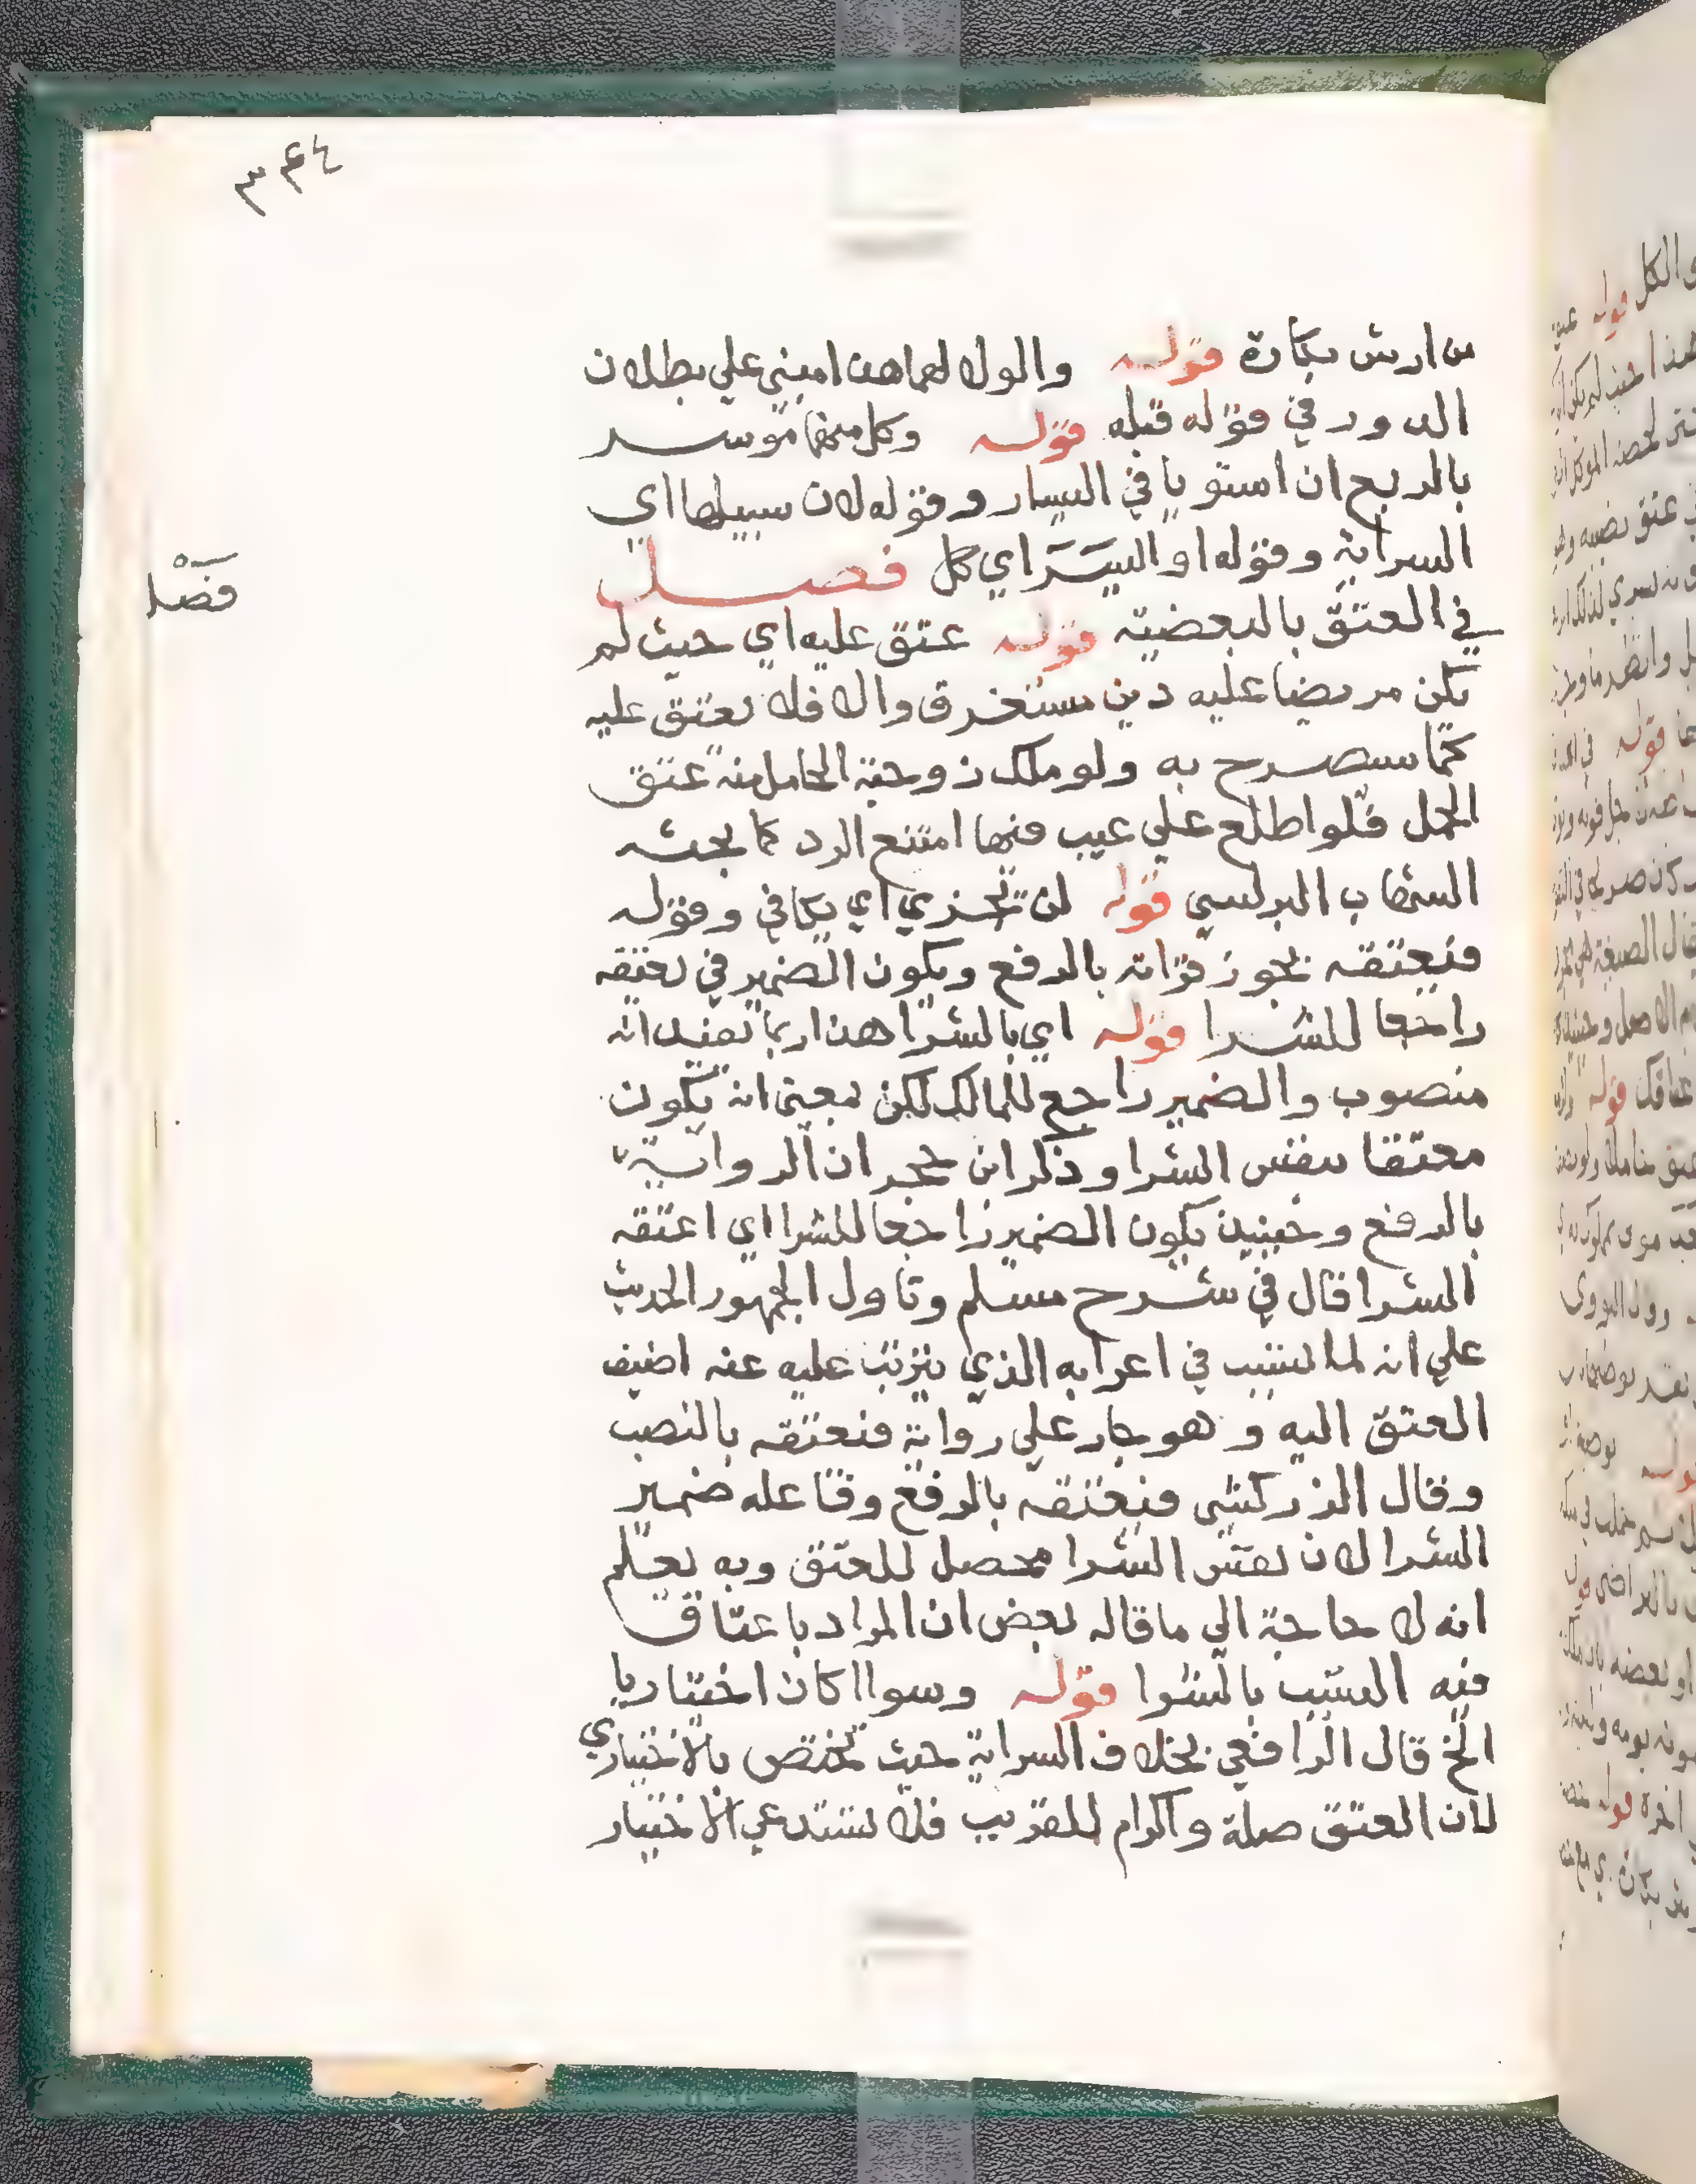 ٣٤٤
من ارش بكارة قوله والولا لهما هذا مبني علي بطلان
الدور في قوله قبله قوله وكل منهما موسر
بالربع ان استويا في اليسار وقوله لان سبيلها اي
السراية وقوله او اليسر اي كل فصل
فصل
في العتق بالبعضية قوله عتق عليه اي حيث لم
يكن مريضا عليه دين مستغرق والا فلا يعتق عليه
كما سيصرح به ولو ملك زوجته الحامل منه عتق
الحمل فلو اطلع علي عيب فيها امتنع الرد كما بحثه
الشهاب البرلسي قوله لن تجزي اي يكافي وقوله
فيعتقه يجوز قراته بالرفع ويكون الضمير في يعتقه
راجعا للشرا قوله اي بالشرا هذا ربما يفيد انه
منصوب والضمير راجع للمالك لكن بمعني انه يكون
معتقا بنفس الشرا وذكر ابن حجر ان الرواية
بالرفع وحينيذ يكون الضمير راجعا للشرا اي اعتقه
الشرا قال في شرح مسلم وتاول الجمهور الحديث
علي انه لما تسبب في اعرابه الذي يترتب عليه عنه اضيف
العتق اليه وهو جار علي رواية فيعتقه بالنصب
وقال الزركشي فيعتقه بالرفع وفاعله ضمير
الشرا لان نفس الشرا محصل للعتق وبه يعلم
انه لا حاجة الي ما قاله بعض ان المراد باعتاق
فيه التسبب بالشرا قوله وسوا اكان اختياريا
الخ قال الرافعي بخلاف السراية حيث تختص بالاختياري
لان العتق صلة واكرام للقريب فلا يستدعي الاختيار